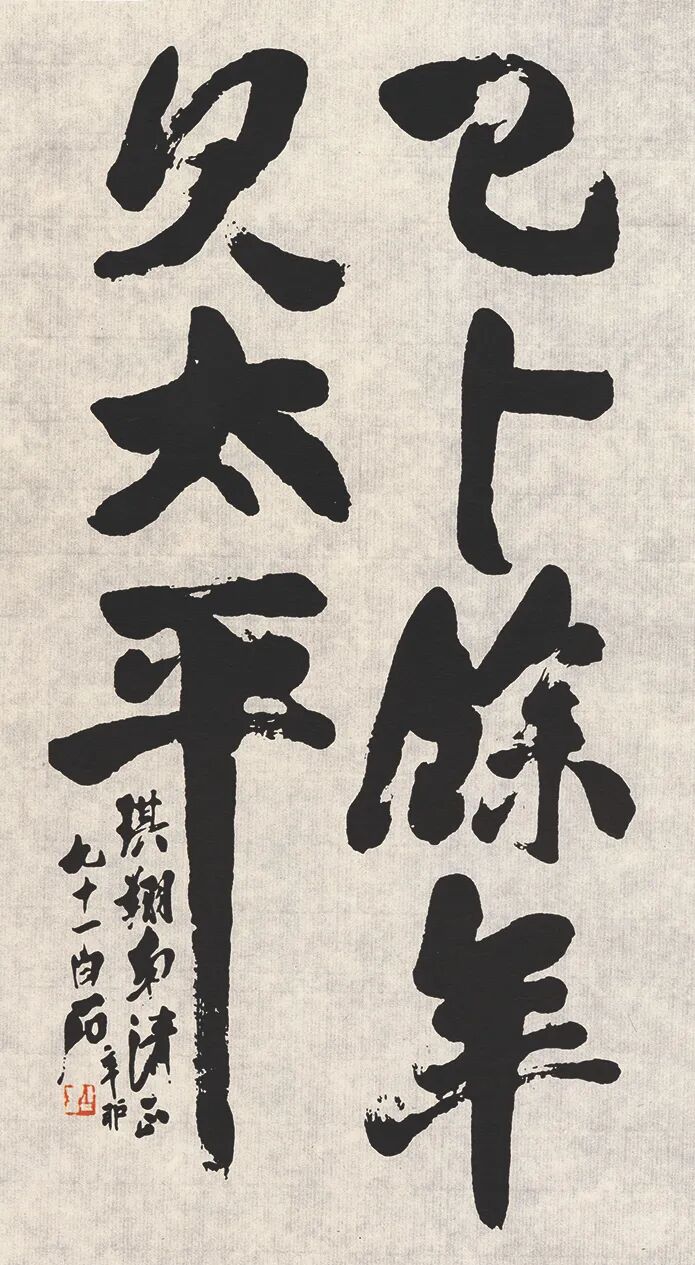 已卜餘年
見太平
琪翔清正
辛卯
九十一白石